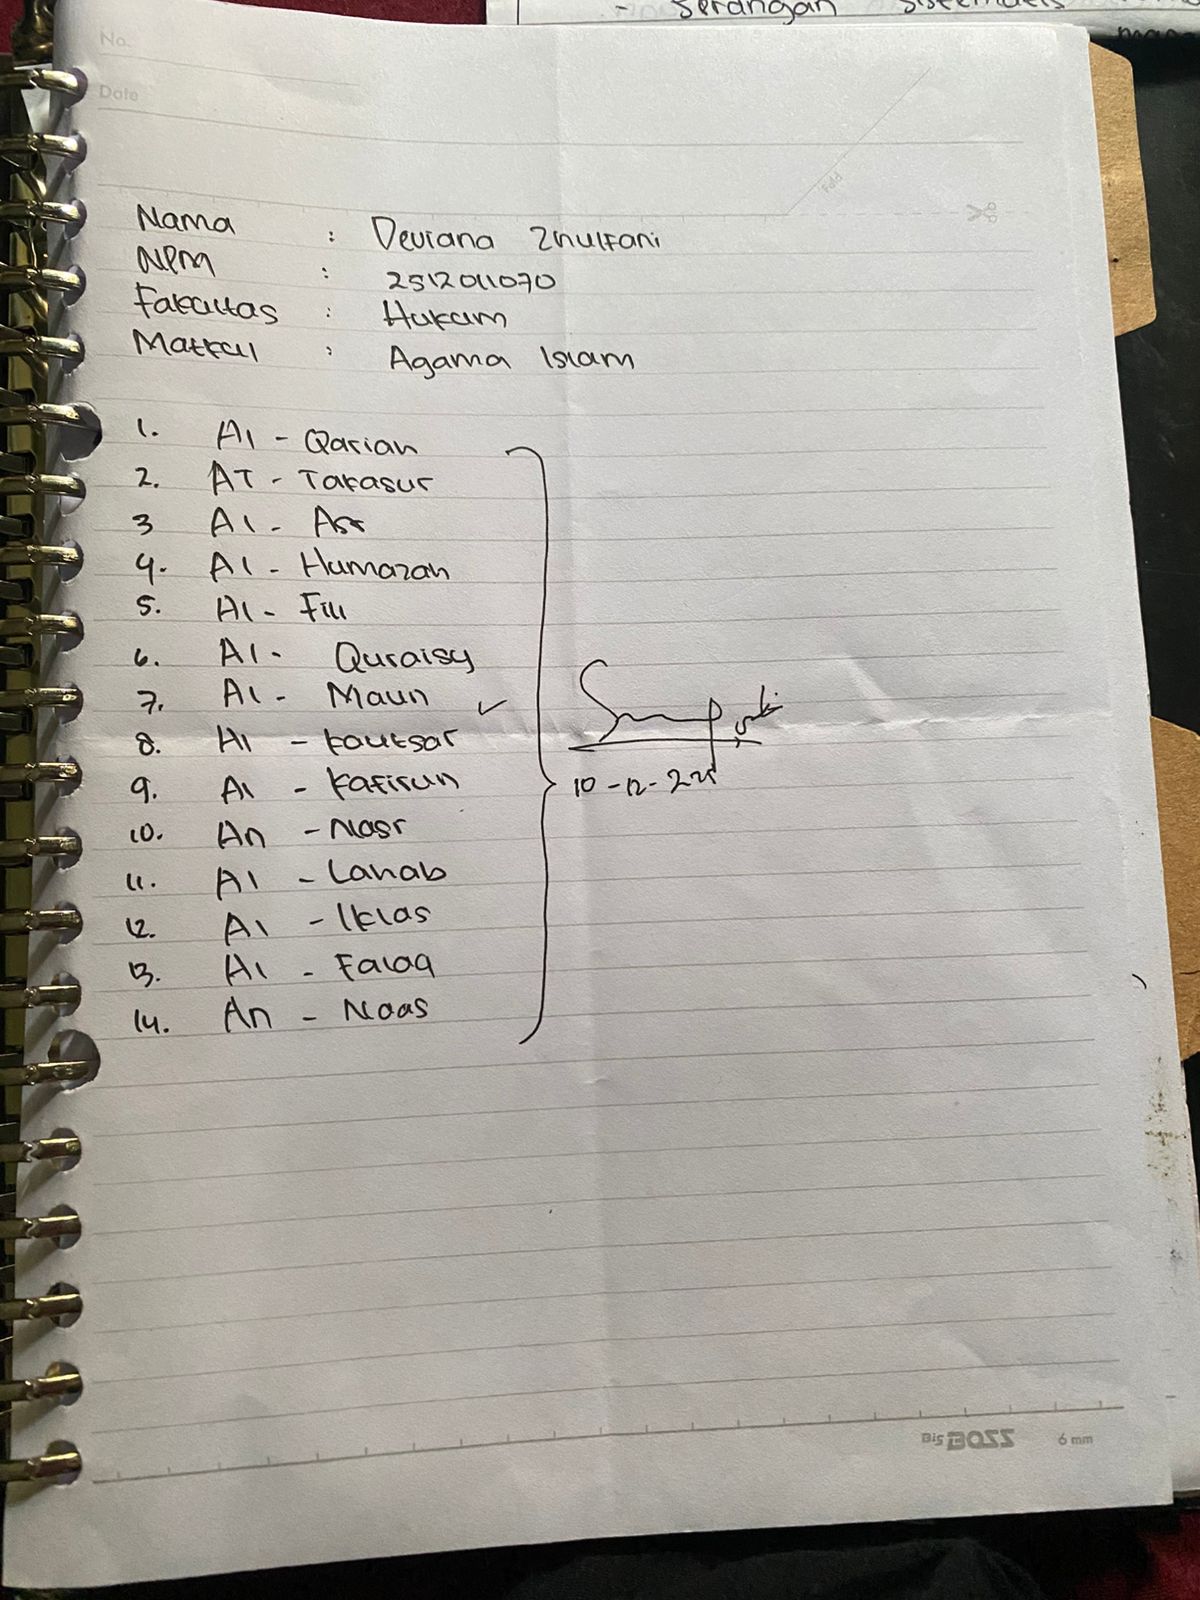 - serangan sistematis
No.
Date
Fold
Nama : Deviana Zhulfani
NPM : 2512011070
Fakultas : Hukum
Matkul : Agama Islam
1. Al - Qariah
2. AT - Takasur
3 Al - Asr
4. Al - Humazah
5. Al - Fill
6. Al - Quraisy
7. Al - Maun ✓
8. Al - kautsar
9. Al - kafirun
10. An - Nasr
11. Al - Lahab
12. Al - Iklas
13. Al - Falaq
14. An - Naas
10-12-225
Big BOSS 6 mm